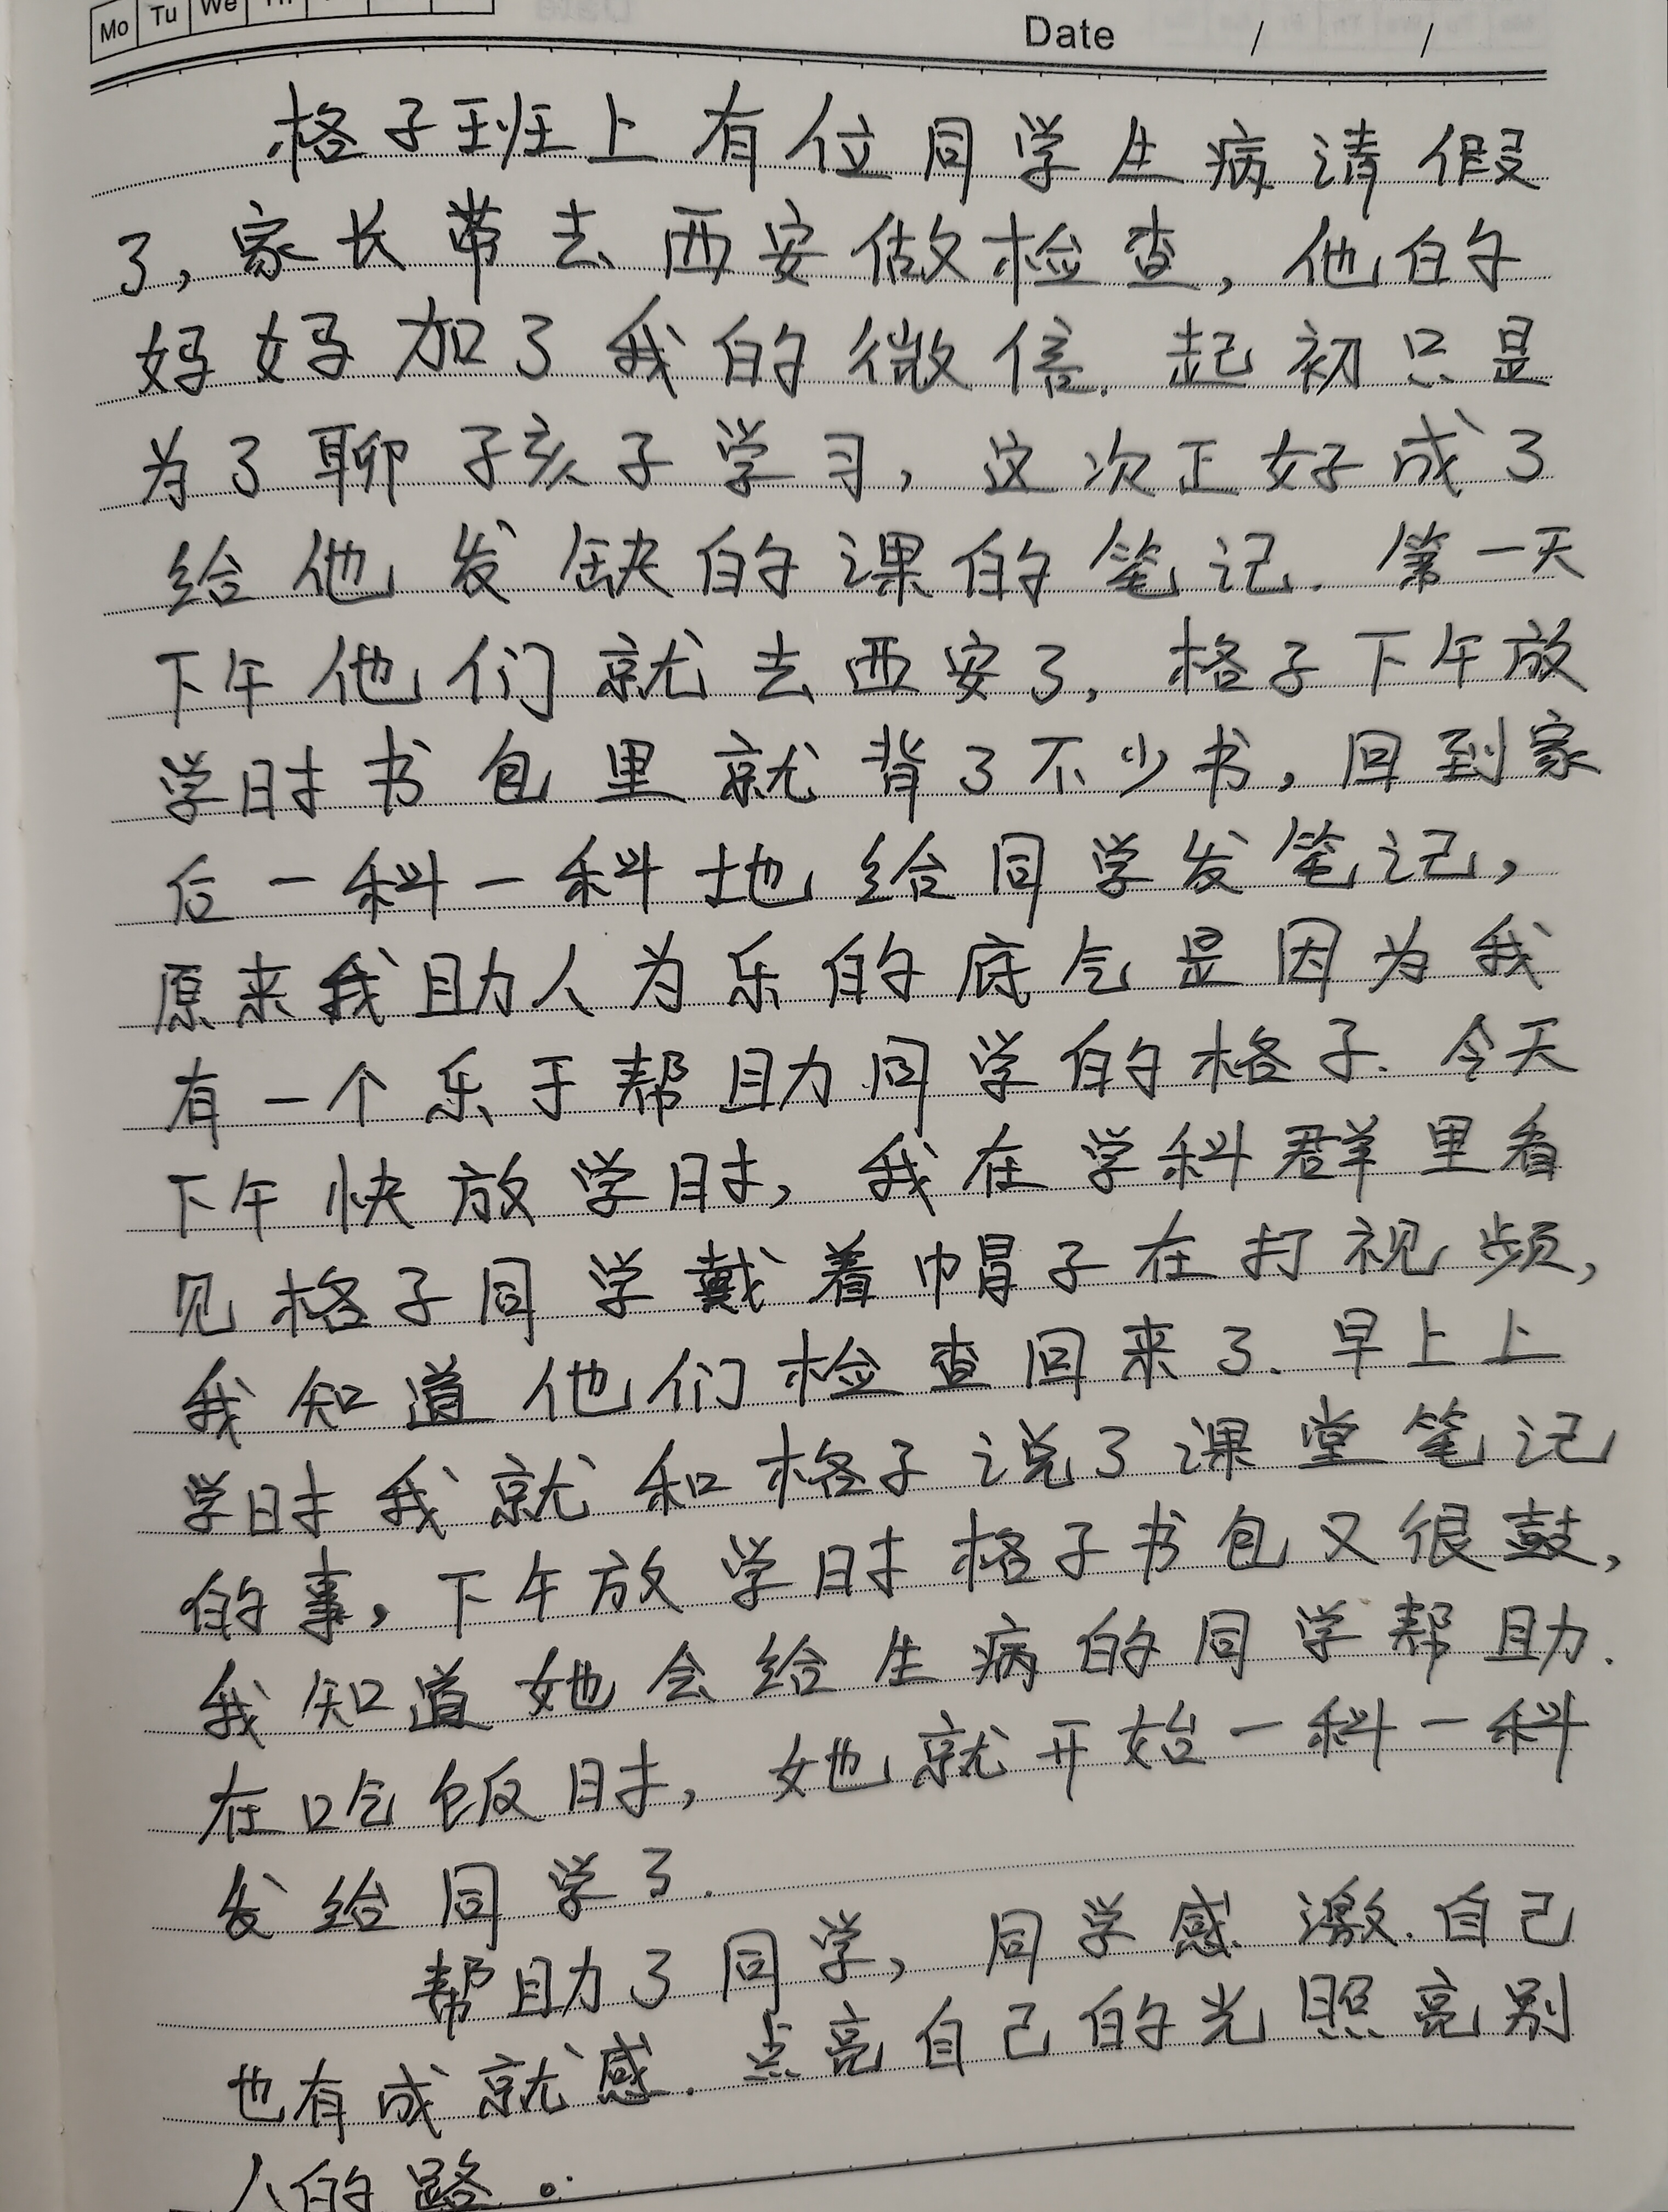 Mo Tu We Th
Date / /
格子班上有位同学生病请假
了,家长带去西安做检查,他的
妈妈加了我的微信.起初只是
为了聊孩子学习,这次正好成了
给他发缺的课的笔记.第一天
下午他们就去西安了,格子下午放
学时书包里就背了不少书,回到家
后一科一科地给同学发笔记,
原来我助人为乐的底气是因为我
有一个乐于帮助同学的格子.今天
下午快放学时,我在学科群里看
见格子同学戴着帽子在打视频,
我知道他们检查回来了.早上上
学时我就和格子说了课堂笔记
的事,下午放学时格子书包又很鼓,
我知道她会给生病的同学帮助.
在吃饭时,她就开始一科一科
发给同学了.
帮助了同学,同学感激.自己
也有成就感.点亮自己的光照亮别
人的路。